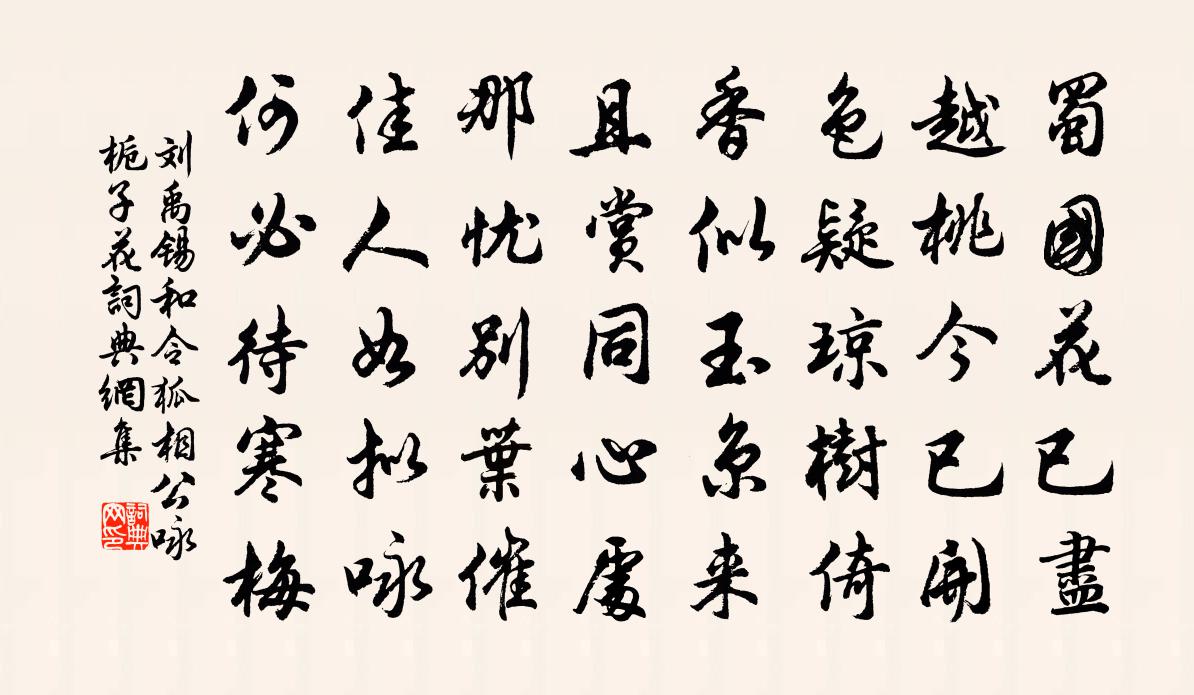 蜀國花已盡
越桃今已開
色疑琼樹倚
香似玉京来
且賞同心處
那忧别葉催
佳人如拟咏
何必待寒梅
刘禹錫和令狐相公咏
栀子花詞典網集
詞典网印